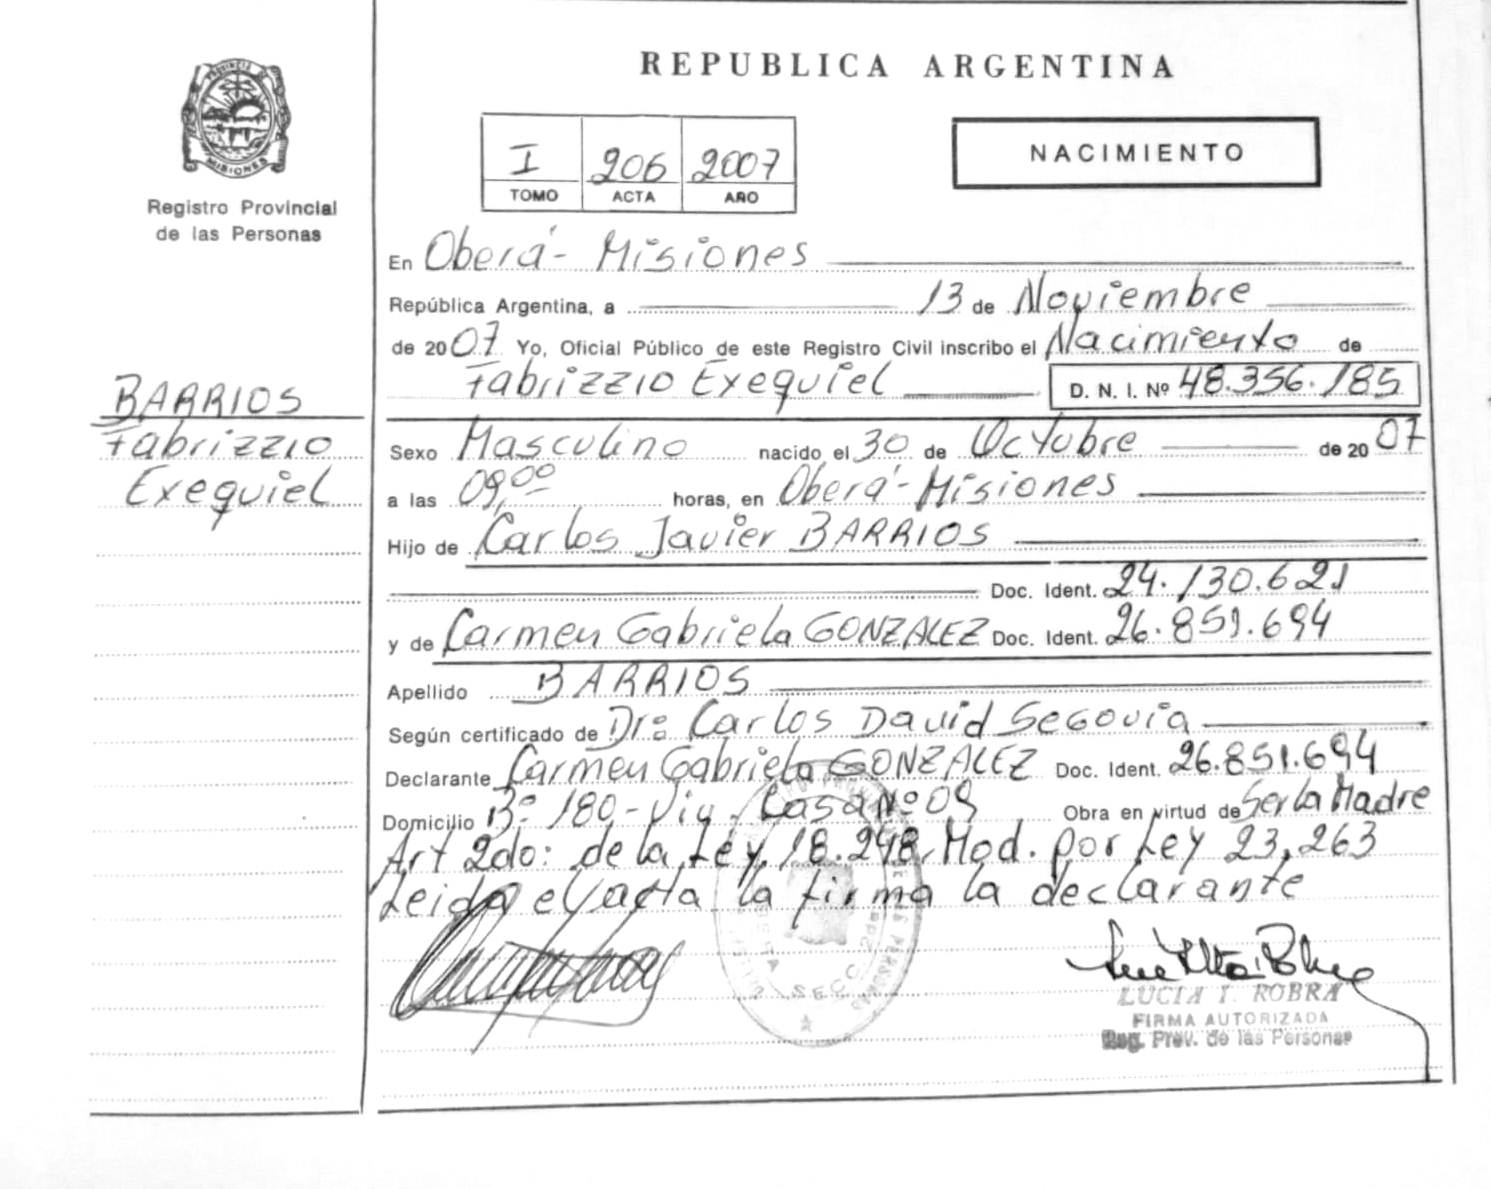 REPUBLICA ARGENTINA
PROVINCIA DE
MISIONES
Registro Provincial
de las Personas
I 206 2007
TOMO ACTA AÑO
NACIMIENTO
BARRIOS
Fabrizzio
Exequiel
En Oberá - Misiones
República Argentina, a 13 de Noviembre
de 2007 Yo, Oficial Público de este Registro Civil inscribo el Nacimiento de
Fabrizzio Exequiel D. N. I. Nº 48.356.185
Sexo Masculino nacido el 30 de Octubre de 2007
a las 09,00 horas, en Oberá - Misiones
Hijo de Carlos Javier BARRIOS
Doc. Ident. 24.130.621
y de Carmen Gabriela GONZALEZ Doc. Ident. 26.851.694
Apellido BARRIOS
Según certificado de Dr: Carlos David Segovia
Declarante Carmen Gabriela GONZALEZ Doc. Ident. 26.851.694
Domicilio Bº 180 - Viv. Casa Nº 09 Obra en virtud de Ser la Madre
Art 2do: de la Ley. 18.248. Mod. por Ley 23,263
Leida el acta la firma la declarante
SECC. 2da
LUCIA I. ROBRA
FIRMA AUTORIZADA
Reg. Prov. de las Personas